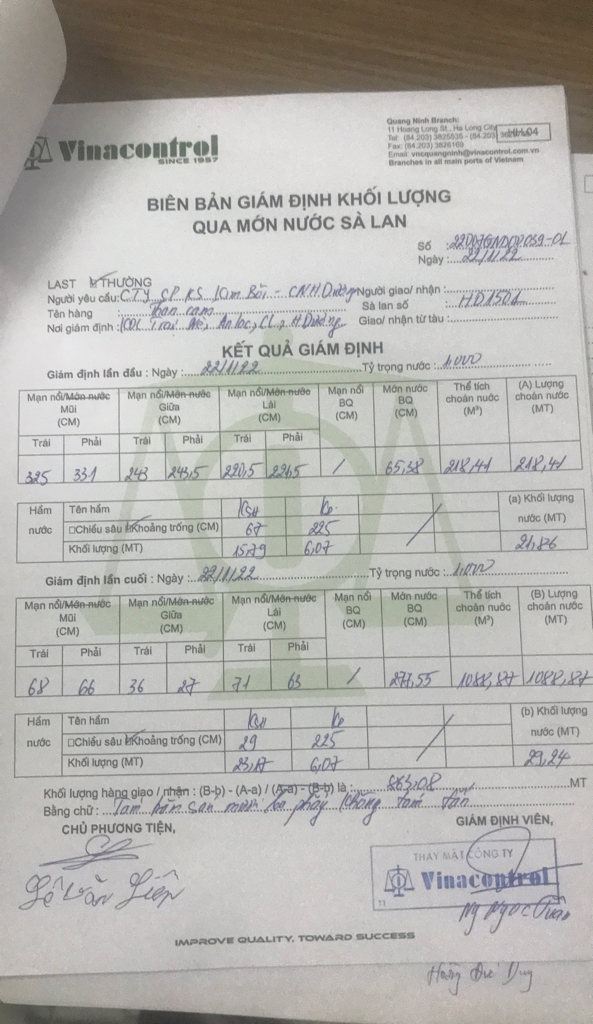 Vinacontrol
SINCE 1957
Quang Ninh Branch:
11 Hoang Long St., Ha Long City
Tel: (84.203) 3825535 - (84.203)
Fax: (84.203) 3826169
Email: vncquangninh@vinacontrol.com.vn
Branches in all main ports of Vietnam
BIÊN BẢN GIÁM ĐỊNH KHỐI LƯỢNG
QUA MỚN NƯỚC SÀ LAN
Số :
Ngày : 22/11/22
LAST THƯỜNG
Người yêu cầu: CTY CP KS Kim Bôi - CN H.Dương Người giao/ nhận :
Tên hàng : Than cám Sà lan số : HD1501
Nơi giám định : An lạc, CL, H.Dương Giao/ nhận từ tàu :
KẾT QUẢ GIÁM ĐỊNH
Giám định lần đầu : Ngày : 22/11/22 Tỷ trọng nước : 1.000
Mạn nổi/Mớn nước Mũi (CM) Mạn nổi/Mớn nước Giữa (CM) Mạn nổi/Mớn nước Lái (CM) Mạn nổi BQ (CM) Mớn nước BQ (CM) Thể tích choán nước (M³) (A) Lượng choán nước (MT)
Trái Phải Trái Phải Trái Phải
325 331 243 243,5 220,5 / 65,38 218,41 218,41
Hầm nước Tên hầm KSH (a) Khối lượng nước (MT)
Chiều sâu Khoảng trống (CM) 67 225
Khối lượng (MT) 15,79 6,07 21,86
Giám định lần cuối : Ngày : 22/11/22 Tỷ trọng nước : 1.000
Mạn nổi/Mớn nước Mũi (CM) Mạn nổi/Mớn nước Giữa (CM) Mạn nổi/Mớn nước Lái (CM) Mạn nổi BQ (CM) Mớn nước BQ (CM) Thể tích choán nước (M³) (B) Lượng choán nước (MT)
Trái Phải Trái Phải Trái Phải
68 66 36 27 71 65 / 277,55 1088,87 1088,87
Hầm nước Tên hầm KSH (b) Khối lượng nước (MT)
Chiều sâu Khoảng trống (CM) 29 225
Khối lượng (MT) 23,17 6,07 29,24
Khối lượng hàng giao / nhận : (B-b) - (A-a) / (A-a) - (B-b) là : 863,08 MT
Bằng chữ : Tám trăm sáu mươi ba phẩy không tám tấn
CHỦ PHƯƠNG TIỆN,
GIÁM ĐỊNH VIÊN,
THAY MẶT CÔNG TY
Vinacontrol
11
Lê Văn
Ng Ngọc Tuân
IMPROVE QUALITY, TOWARD SUCCESS
Hoàng Đức Duy